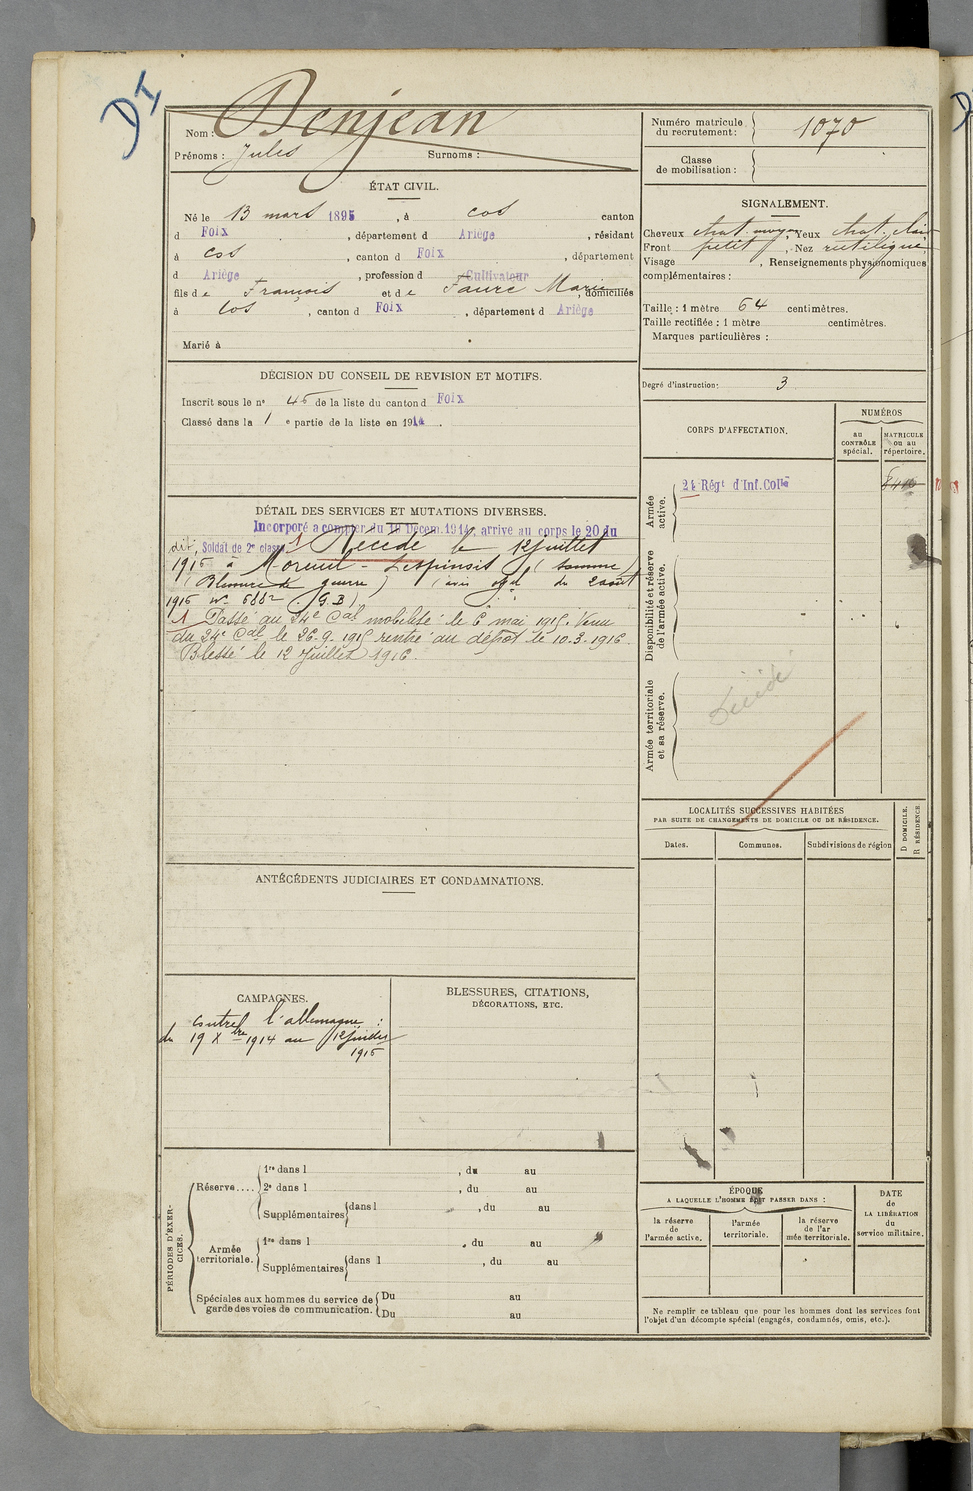 DI
Nom : Denjean
Prénoms : Jules Surnoms :
Numéro matricule du recrutement : 1070
Classe de mobilisation :
ÉTAT CIVIL.
Né le 13 mars 1895, à cos canton
d Foix, département d Ariège, résidant
à cos, canton d Foix, département
d Ariège, profession d Cultivateur
fils de François et de Faure Marie, domiciliés
à Cos, canton d Foix, département d Ariège
Marié à
SIGNALEMENT.
Cheveux chat. moyen, Yeux chat. clair
Front petit, Nez rectiligne
Visage , Renseignements physionomiques
complémentaires :
Taille : 1 mètre 64 centimètres.
Taille rectifiée : 1 mètre centimètres.
Marques particulières :
Degré d'instruction : 3
DÉCISION DU CONSEIL DE REVISION ET MOTIFS.
Inscrit sous le nº 45 de la liste du canton d Foix
Classé dans la 1 e partie de la liste en 1914.
CORPS D'AFFECTATION.
NUMÉROS
au CONTRÔLE spécial.
MATRICULE ou au répertoire.
Armée active.
24 Régt d'Inf. Colle
Disponibilité et réserve de l'armée active.
Armée territoriale et sa réserve.
Décédé
DÉTAIL DES SERVICES ET MUTATIONS DIVERSES.
Incorporé a compter du 19 Décem. 1914, arrive au corps le 20 du
dit, Soldat de 2e classe. 1 Décédé le 12 Juillet
1916 à Moreuil - (Somme)
(Blessure de guerre) (avis offel du 2 août
1916 Nº (G.B)
1 Passé au 34e Cal mobilité le 6 mai 1915. Venu
du 24e Cal le 26.9.1915 rentré au dépot le 10.3.1916.
Blessé le 12 Juillet 1916.
LOCALITÉS SUCCESSIVES HABITÉES
PAR SUITE DE CHANGEMENTS DE DOMICILE OU DE RÉSIDENCE.
Dates.
Communes.
Subdivisions de région
D DOMICILE.
R RÉSIDENCE
ANTÉCÉDENTS JUDICIAIRES ET CONDAMNATIONS.
CAMPAGNES.
contre l'allemagne :
du 19 Xbre 1914 au 12 juillet
1916
BLESSURES, CITATIONS,
DÉCORATIONS, ETC.
PÉRIODES D'EXERCICES.
Réserve....
1re dans l , du au
2e dans l , du au
Supplémentaires dans l , du au
Armée territoriale.
1re dans l , du au
Supplémentaires dans l , du au
Spéciales aux hommes du service de garde des voies de communication.
Du au
Du au
ÉPOQUE
A LAQUELLE L'HOMME DOIT PASSER DANS :
la réserve de l'armée active.
l'armée territoriale.
la réserve de l'armée territoriale.
DATE de LA LIBÉRATION du service militaire.
Ne remplir ce tableau que pour les hommes dont les services font
l'objet d'un décompte spécial (engagés, condamnés, omis, etc.).